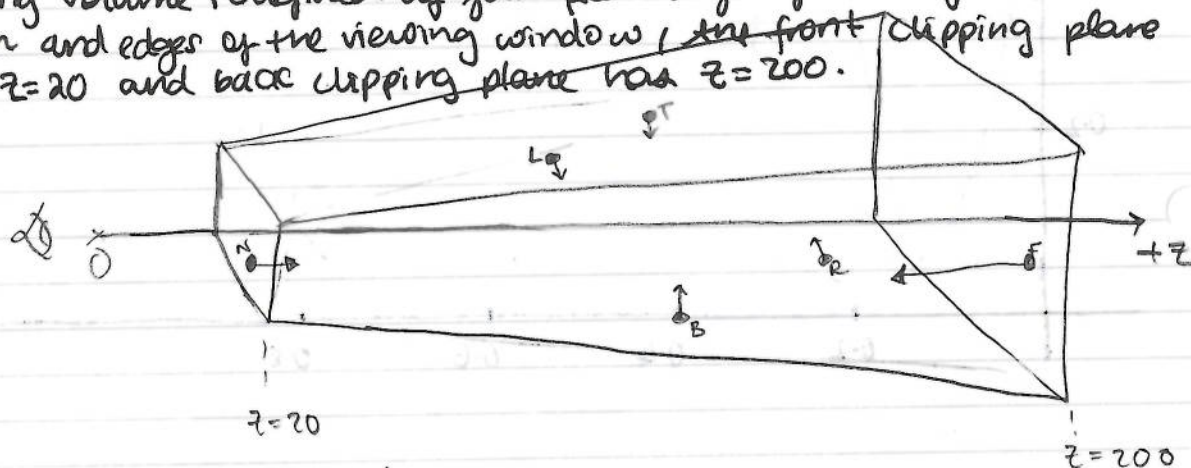 and edges of the viewing window, the front clipping plane
z=20 and back clipping plane has z=200.
T
L
N
R
F
O
+z
B
z=20
z=200